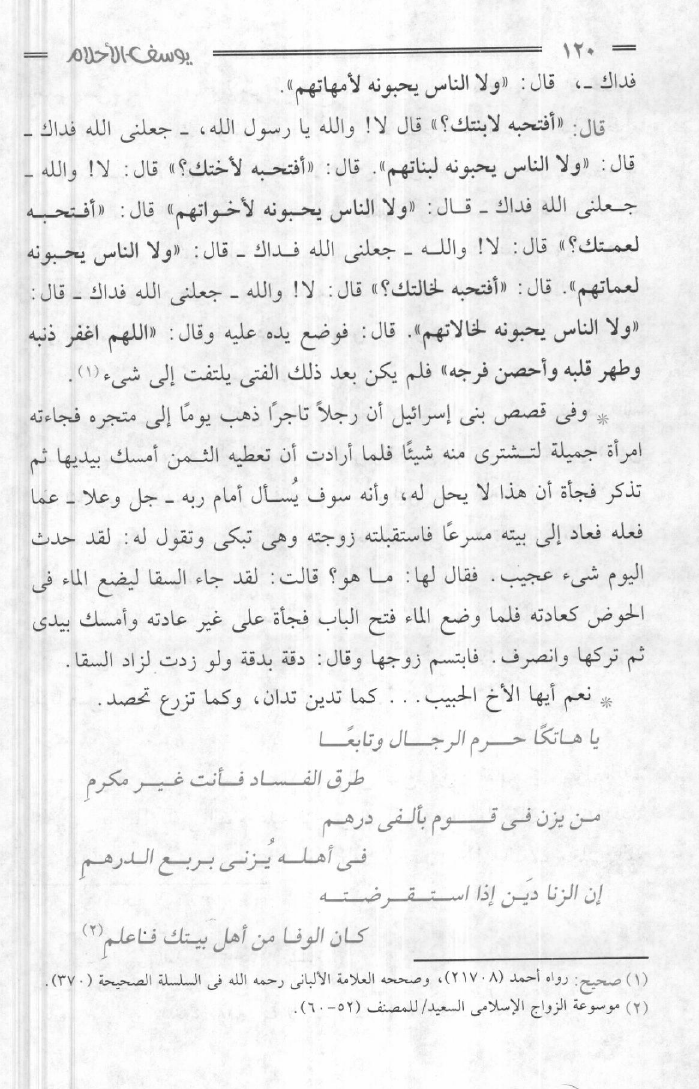 ١٢٠ يوسف الأحلام
فداك ـ، قال: «ولا الناس يحبونه لأمهاتهم».
قال: «أفتحبه لابنتك؟» قال لا! والله يا رسول الله، ـ جعلنى الله فداك ـ
قال: «ولا الناس يحبونه لبناتهم». قال: «أفتحبه لأختك؟» قال: لا! والله ـ
جعلنى الله فداك ـ قال: «ولا الناس يحبونه لأخواتهم» قال: «أفتحبه
لعمتك؟» قال: لا! والله ـ جعلنى الله فداك ـ قال: «ولا الناس يحبونه
لعماتهم». قال: «أفتحبه لخالتك؟» قال: لا! والله ـ جعلنى الله فداك ـ قال:
«ولا الناس يحبونه لخالاتهم». قال: فوضع يده عليه وقال: «اللهم اغفر ذنبه
وطهر قلبه وأحصن فرجه» فلم يكن بعد ذلك الفتى يلتفت إلى شىء (١).
* وفى قصص بنى إسرائيل أن رجلاً تاجرًا ذهب يومًا إلى متجره فجاءته
امرأة جميلة لتشترى منه شيئًا فلما أرادت أن تعطيه الثمن أمسك بيديها ثم
تذكر فجأة أن هذا لا يحل له، وأنه سوف يُسأل أمام ربه ـ جل وعلا ـ عما
فعله فعاد إلى بيته مسرعًا فاستقبلته زوجته وهى تبكى وتقول له: لقد حدث
اليوم شىء عجيب. فقال لها: ما هو؟ قالت: لقد جاء السقا ليضع الماء فى
الحوض كعادته فلما وضع الماء فتح الباب فجأة على غير عادته وأمسك بيدى
ثم تركها وانصرف. فابتسم زوجها وقال: دقة بدقة ولو زدت لزاد السقا.
* نعم أيها الأخ الحبيب... كما تدين تدان، وكما تزرع تحصد.
يا هاتكًا حرم الرجال وتابعًا
طرق الفساد فأنت غير مكرمِ
من يزن فى قوم بألفى درهم
فى أهله يُزنى بربع الدرهمِ
إن الزنا دَين إذا استقرضته
كان الوفا من أهل بيتك فاعلمِ (٢)
(١) صحيح: رواه أحمد (٢١٧٠٨)، وصححه العلامة الألبانى رحمه الله فى السلسلة الصحيحة (٣٧٠).
(٢) موسوعة الزواج الإسلامى السعيد/ للمصنف (٥٢-٦٠).